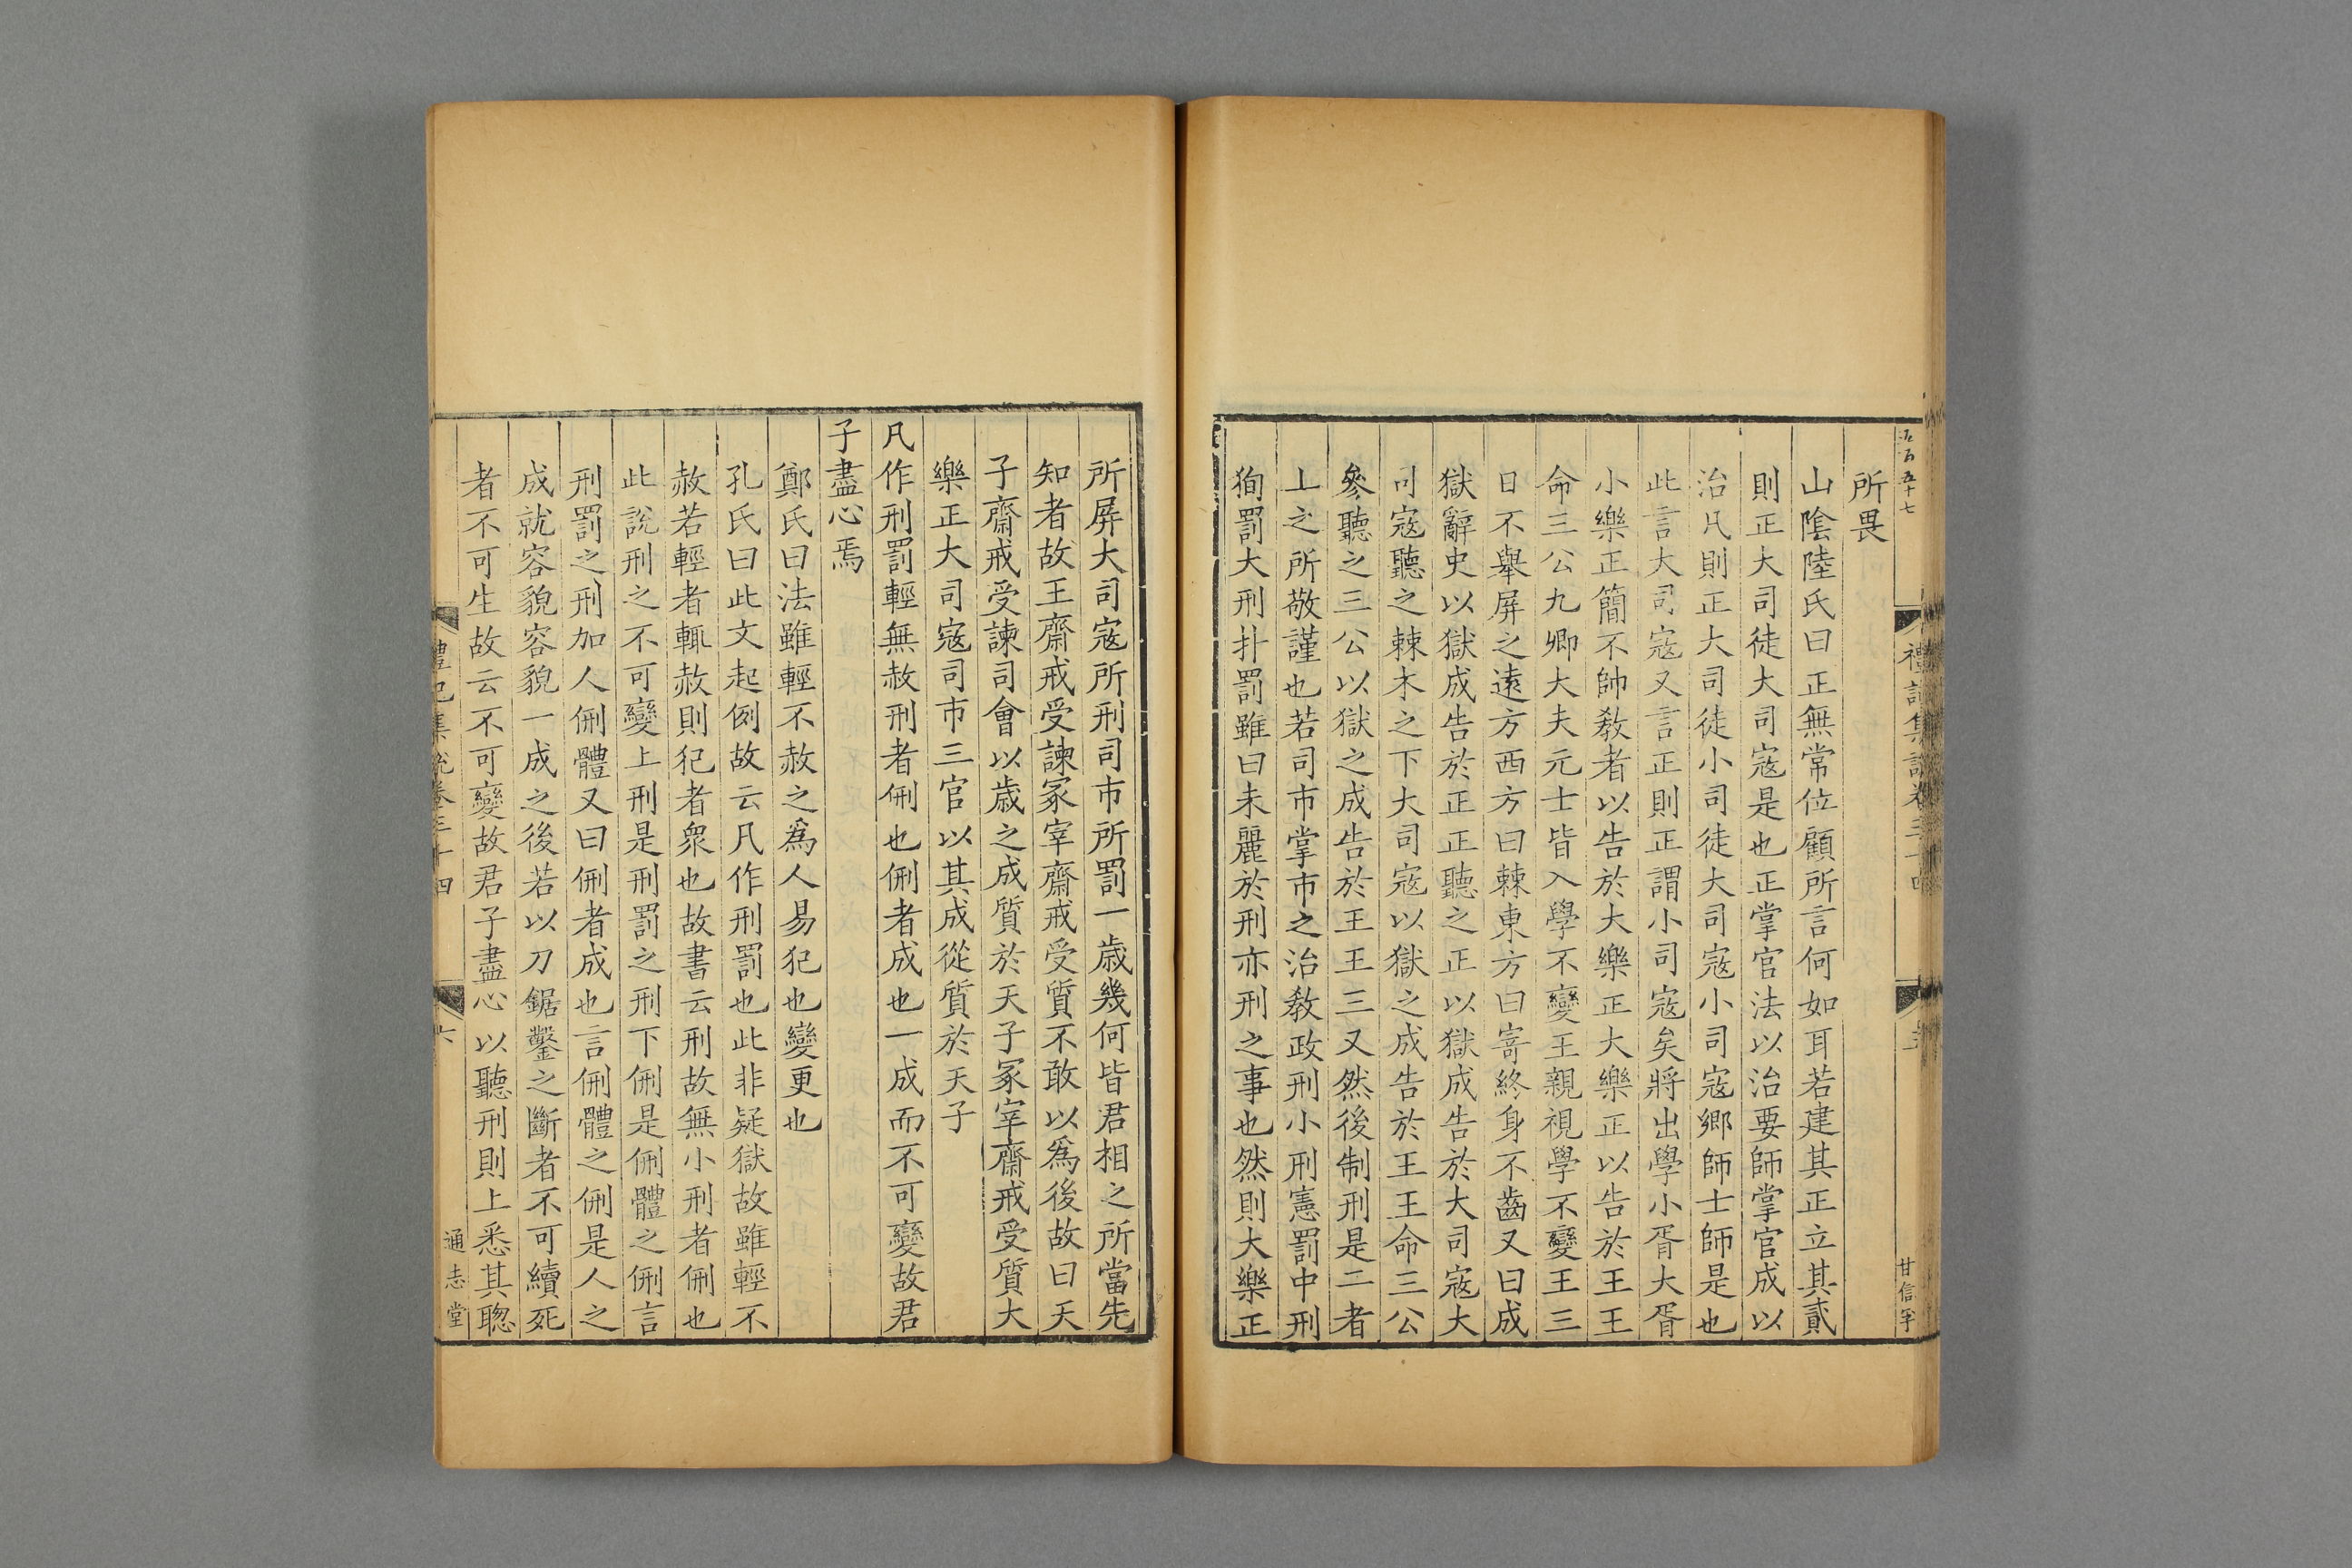 五百五十七
禮記集說卷三十四
五
甘信字
所畏
山陰陸氏曰正無常位顧所言何如耳若建其正立其貳
則正大司徒大司寇是也正掌官法以治要師掌官成以
治凡則正大司徒小司徒大司寇小司寇鄉師士師是也
此言大司寇又言正則正謂小司寇矣將出學小胥大胥
小樂正簡不帥敎者以告於大樂正大樂正以告於王王
命三公九卿大夫元士皆入學不變王親視學不變王三
日不舉屏之遠方西方曰棘東方曰寄終身不齒又曰成
獄辭史以獄成告於正正聽之正以獄成告於大司寇大
司寇聽之棘木之下大司寇以獄之成告於王王命三公
參聽之三公以獄之成告於王王三又然後制刑是二者
上之所敬謹也若司市掌市之治敎政刑小刑憲罰中刑
狥罰大刑扑罰雖曰未麗於刑亦刑之事也然則大樂正
所屏大司寇所刑司市所罰一歲幾何皆君相之所當先
知者故王齋戒受諫冢宰齋戒受質不敢以爲後故曰天
子齋戒受諫司會以歲之成質於天子冢宰齋戒受質大
樂正大司寇司市三官以其成從質於天子
凡作刑罰輕無赦刑者侀也侀者成也一成而不可變故君
子盡心焉
鄭氏曰法雖輕不赦之爲人易犯也變更也
孔氏曰此文起例故云凡作刑罰也此非疑獄故雖輕不
赦若輕者輒赦則犯者衆也故書云刑故無小刑者侀也
此說刑之不可變上刑是刑罰之刑下侀是侀體之侀言
刑罰之刑加人侀體又曰侀者成也言侀體之侀是人之
成就容貌容貌一成之後若以刀鋸鑿之斷者不可續死
者不可生故云不可變故君子盡心以聽刑則上悉其聰
禮記集說卷三十四
六
通志堂